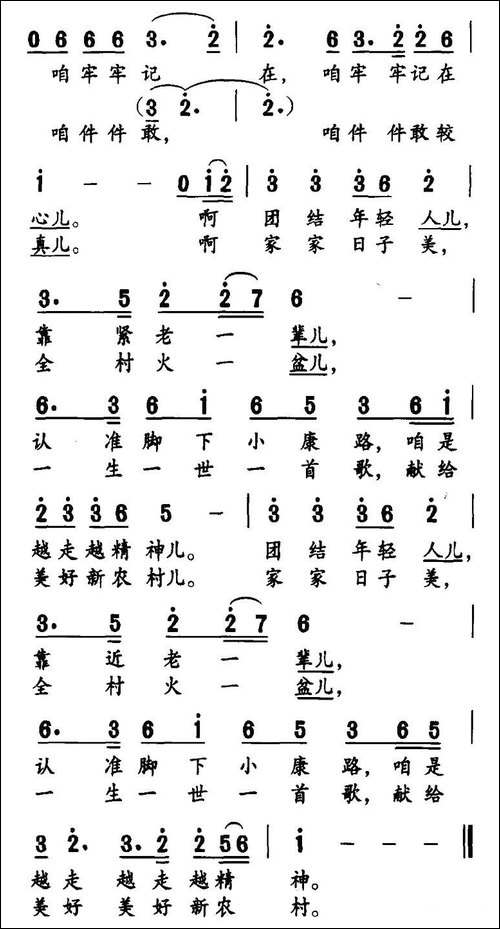 0 6 6 6 3· 2 | 2· 6 3· 2 2 6 |
咱 牢 牢 记 在， 咱 牢 牢 记 在
( 3 2· | 2· )
咱 件 件 敢， 咱 件 件 敢 较
1 - - 0 1 2 | 3 3 3 6 2 |
心儿。 啊 团 结 年 轻 人儿，
真儿。 啊 家 家 日 子 美，
3· 5 2 2 7 6 - |
靠 紧 老 一 辈儿，
全 村 火 一 盆儿，
6· 3 6 1 6 5 3 6 1 |
认 准 脚 下 小 康 路，咱 是
一 生 一 世 一 首 歌，献 给
2 3 3 6 5 - | 3 3 3 6 2 |
越 走 越 精 神儿。 团 结 年 轻 人儿，
美 好 新 农 村儿。 家 家 日 子 美，
3· 5 2 2 7 6 - |
靠 近 老 一 辈儿，
全 村 火 一 盆儿，
6· 3 6 1 6 5 3 6 5 |
认 准 脚 下 小 康 路，咱 是
一 生 一 世 一 首 歌，献 给
3 2· 3· 2 2 5 6 | 1 - - - ‖
越 走 越 走 越 精 神。
美 好 美 好 新 农 村。